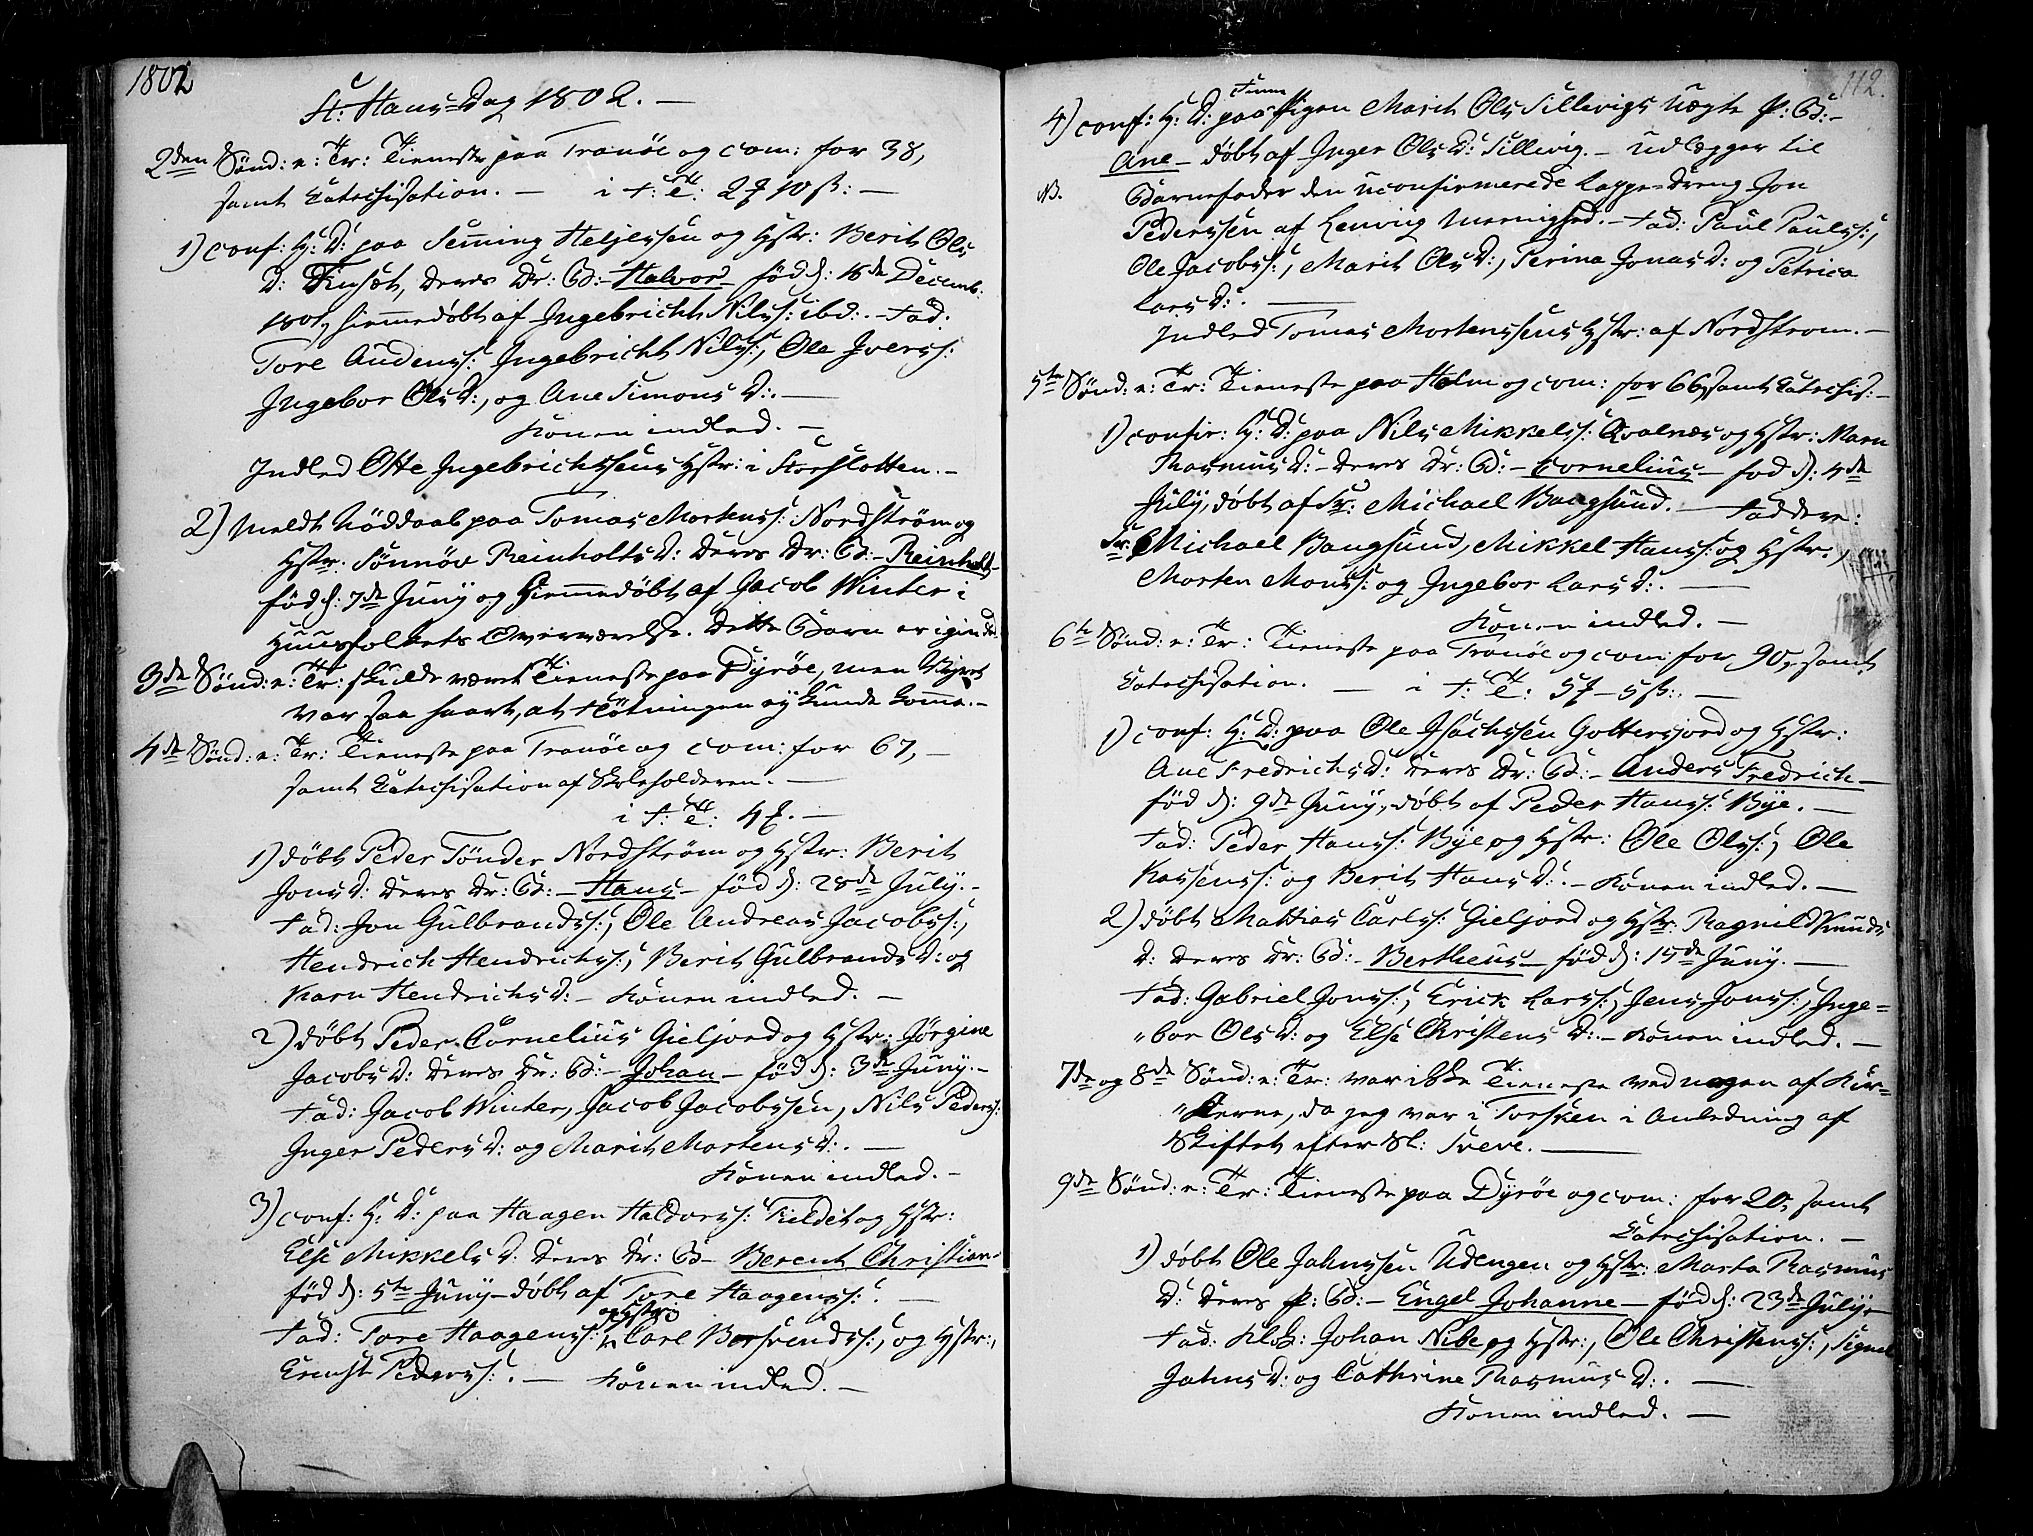 1802
St: Hans-Dag 1802. —
2den Sønd: e: Tr: Tieneste paa Tranöe og com: for 38,
samt Catechisation. — i t: 2 10 ß: —
1) conf: H: D: paa Henning Heljessen og Hstr: Berit Ols
D: deres Dr: B: – Halvor – föd d: 16de Decemb:
1801, hiemmedöbt af Ingebricht Nilss: ibd: – Fad:
Tore Audenss: Ingebricht Nilss:, Ole Iverss:
Ingebor Ols D:, og Ane Simons D:. —
Konen indled. —
Indled Otte Ingebrichtssens Hstr: i Storslotten. –
2) Meldt Nöddaab paa Tomas Mortenss: Nordström og
Hstr: Sönnöv Reinholts D: deres Dr: B: – Reinholt –
föd d: 7de Juny og hiemmedöbt af Jacob Winter i
Huusfolkets Overværelse. Dette Barn er igien död.
3de Sønd: e: Tr: skulde været Tieneste paa Dyröe, men Veiret
var saa haart, at Flötningen ey kunde komme. –
4de Sønd: e: Tr: Tieneste paa Tranöe og com: for 67, —
samt Catechisation af Skoleholderen. —
i t: 4 . —
1) döbt Peder Tönder Nordström og Hstr: Berit
Jons D: deres Dr: B: – Hans – föd d: 28de July. –
Fad: Jon Gulbrandss:, Ole Andreas Jacobss:,
Hendrich Hendrichss:, Berit Gulbrands D: og
Karn Hendrichs D: – Konen indled. —
2) döbt Peder Cornelius Gieljord og Hstr: Jörgine
Jacobs D: deres Dr: B: – Johan – föd d: 3de Juny. –
Fad: Jacob Winter, Jacob Jacobssen, Nils Pederss:
Inger Peders D: og Marit Mortens D:. —
Konen indled. –
3) conf: H: D: paa Haagen Haldorss: Tieldet og Hstr:
Else Mikkels D: deres Dr: B: – Berent Christian –
föd d: 5te Juny – döbt af Tore Haagenss:. —
og Hstr:
Fad: Tore Haagenss: Carl Bersvendss:, og Hstr:,
Ernst Pederss:. — Konen indled. —
112.
Finn
4) conf: H: D: paa Pigen Marit Ols Sillevigs Uægte P: B: –
Ane – döbt af Inger Ols D: Sillevig. – Udlægger til
NB. Barnefader den uconfirmerede Lappe-Dreng Jon
Pederssen af Lenvig Menighed. – Fad: Paul Paulss:,
Ole Jacobss:, Marit Ols D:, Perina Jonas D: og Petrica
Lars D:. —
Indled Tomas Mortenssens Hstr: af Nordstrom. —
5te Sønd: e: Tr: Tieneste paa Holm og com: for 66, samt Catechis: –
1) confir: H: D: paa Nils Mikkelss: Qvalnæs og Hstr: Marn
Rasmus D: – deres Dr: B: – Cornelius – föd d: 4de
July, döbt af Sr: Michael Vangsund. — Faddere:
Sr: Michael Vangsund, Mikkel Hanss: og Hstr:,
Morten Monss: og Ingebor Lars D:. —
Konen indled. —
6te Sønd: e: Tr: Tieneste paa Tranöe og com: for 90, samt
Catechisation. — i t: 5 – 5 ß:. —
1) conf: H: D: paa Ole Isachssen Gottersjord og Hstr:
Ane Fredrichs D: deres Dr: B: – Anders Fredrich –
föd d: 9de Juny, döbt af Peder Hanss: Bye. —
Fad: Peder Hanss: Bye og Hstr: Ole Olss:, Ole
Kassenss: og Berit Hans D:. – Konen indled. —
2) döbt Mattias Carlss: Gieljord og Hstr: Ragnild Knuds
D: deres Dr: B: – Bertheus – föd d: 15de Juny. —
Fad: Gabriel Jonss:, Erick Larss:, Jens Jonss:, Inge=
"bor Ols D: og Else Christens D:. – Konen indled. —
7de og 8de Sønd: e: Tr: var ikke Tieneste ved nogen af Kir=
"kerne, da jeg var i Torsken i Anledning af
Skiftet efter Sl: Sveve. —
9de Sønd: e: Tr: Tieneste paa Dyröe og com: for 20, samt
Catechisation. —
1) döbt Ole Jahnssen Udengen og Hstr: Marta Rasmus
D: deres P: B: – Engel Johanne – föd d: 23de July –
Fad: Klok: Johan Nibe og Hstr:, Ole Christenss:, Signel
Jahns D: og Cathrine Rasmus D:. —
Konen indled. —